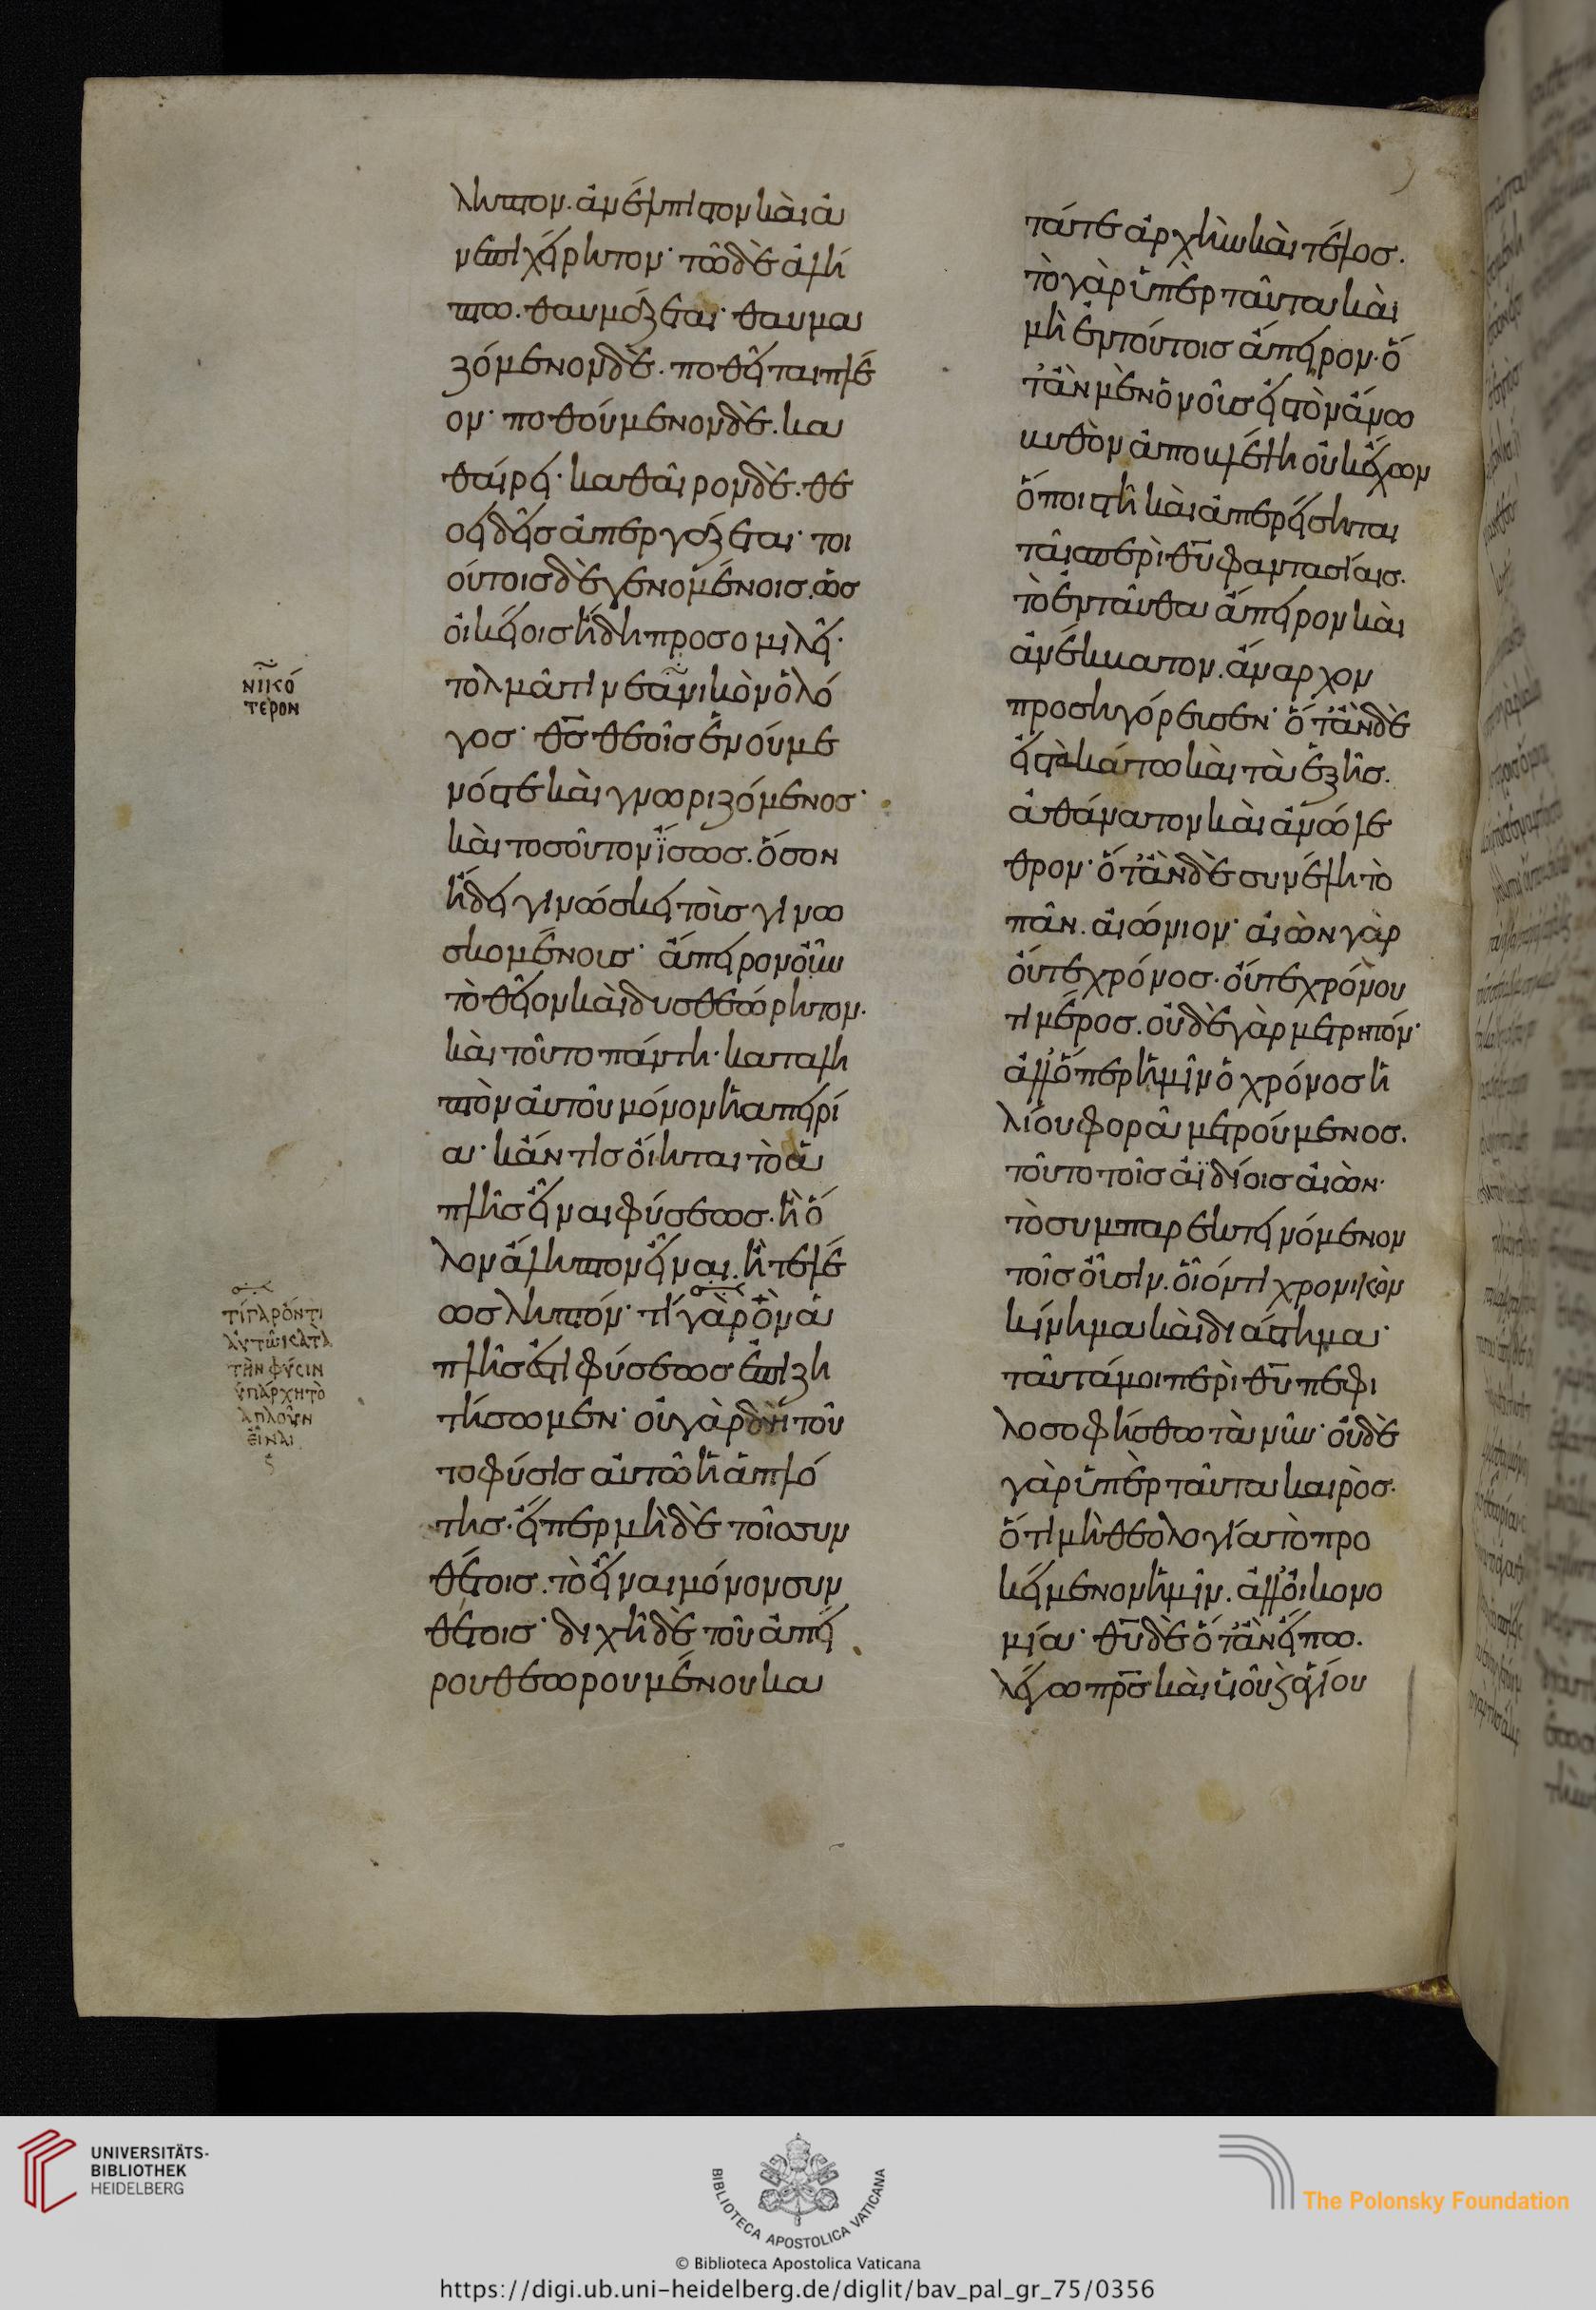 ληπτον. ἀνέλπιστον καὶ ἀ
νεπιχείρητον· τῶ δὲ ἀλή
πτω. θαυμάζεται· θαυμα
ζόμενον δὲ. ποθεῖται πλέ
ον· ποθούμενον δὲ. κα
θαίρει· καθαῖρον δὲ. θε
οειδεῖς ἀπεργάζεται· τοι
ούτοις δὲ γενομένοις. ὡς
οἰκείοις ἤδη προσομιλεῖ·
τολμᾶ τι νεανικὸν ὁ λό
γος· θς θεοῖς ἑνούμε
νός τε καὶ γνωριζόμενος·
καὶ τοσοῦτον ἴσως. ὅσον
ἤδει γινώσκει τοῖς γινω
σκομένοις· ἄπειρον οὖν
τὸ θεῖον καὶ δυσθεώρητον.
καὶ τοῦτο πάντη· καταλη
πτὸν αὐτοῦ μόνον ἡ ἀπειρί
α· κἄν τις οἴηται τὸ ἁ
πλῆς εἶναι φύσεως. ἢ ὅ
λον ἄληπτον εἶναι. ἢ τελέ
ως ληπτόν· τί γὰρ ὂν ἁ
πλῆς ἐστι φύσεως ἐπιζη
τήσωμεν· οὐ γὰρ δὴ τοῦ
το φύσις αὐτῶ ἡ ἁπλό
της. εἴπερ μὴ δὲ τοῖς συν
θέτοις. τὸ εἶναι μόνον συν
θέτοις· διχῆ δὲ τοῦ ἀπεί
ρου θεωρουμένου κα
τά τε ἀρχὴν καὶ τέλος.
τὸ γὰρ ὑπὲρ ταῦτα καὶ
μὴ ἐν τούτοις ἄπειρον. ὅ
τ' ἂν μὲν ὁ νοῦς εἰς τὸν ἄνω
βυθὸν ἀποβλέψη οὐκ ἔχων
ὅποι στῆ καὶ ἀπερείσηται
ταῖς περὶ θυ φαντασίαις.
τὸ ἐνταῦθα ἄπειρον καὶ
ἀνέκβατον. ἄναρχον
προσηγόρευσεν· ὅτ' ἂν δὲ
εἰς τὰ κάτω καὶ τὰ ἑξῆς.
ἀθάνατον καὶ ἀνώλε
θρον· ὅτ' ἂν δὲ συνέλη τὸ
πᾶν. αἰώνιον· αἰὼν γὰρ
οὔτε χρόνος. οὔτε χρόνου
τι μέρος. οὐδὲ γὰρ μετρητόν·
ἀλλ' ὅπερ ἡμῖν ὁ χρόνος ἡ
λίου φορᾶ μετρούμενος.
τοῦτο τοῖς ἀϊδίοις αἰὼν·
τὸ συμπαρεκτεινόμενον
τοῖς οὖσιν. οἷόν τι χρονικὸν
κίνημα καὶ διάστημα·
ταῦτά μοι περὶ θυ πεφι
λοσοφήσθω τὰ νῦν· οὐδὲ
γὰρ ὑπὲρ ταῦτα καιρὸς·
ὅτι μὴ θεολογία τὸ προ
κείμενον ἡμῖν. ἀλλ' οἰκονο
μία· θυ δὲ ὅτ' ἂν εἴπω.
λέγω πρς καὶ υἱοῦ ἁγίου
νικό
τερον
τί γὰρ ὄντι
αὐτῶι κατὰ
τὴν φύσιν
ὑπάρχη τὸ
ἁπλοῦν
εἶναι
UNIVERSITÄTS-
BIBLIOTHEK
HEIDELBERG
BIBLIOTECA APOSTOLICA VATICANA
© Biblioteca Apostolica Vaticana
The Polonsky Foundation
https://digi.ub.uni-heidelberg.de/diglit/bav_pal_gr_75/0356